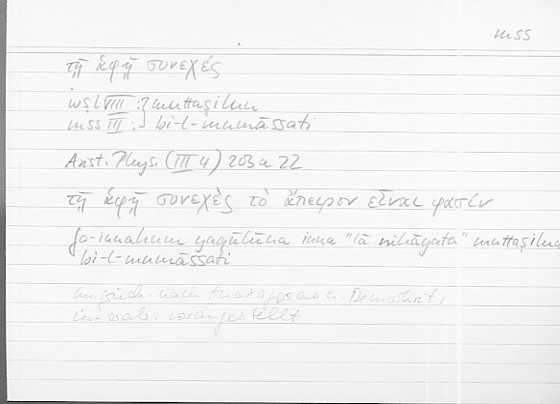 mss
τῇ ἁφῇ συνεχές
wṣl VIII : } muttaṣilun
mss III : } bi-l-mumāssati
Arist. Phys. (III 4) 203 a 22
τῇ ἁφῇ συνεχὲς τὸ ἄπειρον εἶναι φασίν
fa-innahum yaqūlūna inna "lā nihāyata" muttaṣilun
bi-l-mumāssati
im griech. nach Anaxagoras u. Demokrit,
im arab. vorangestellt